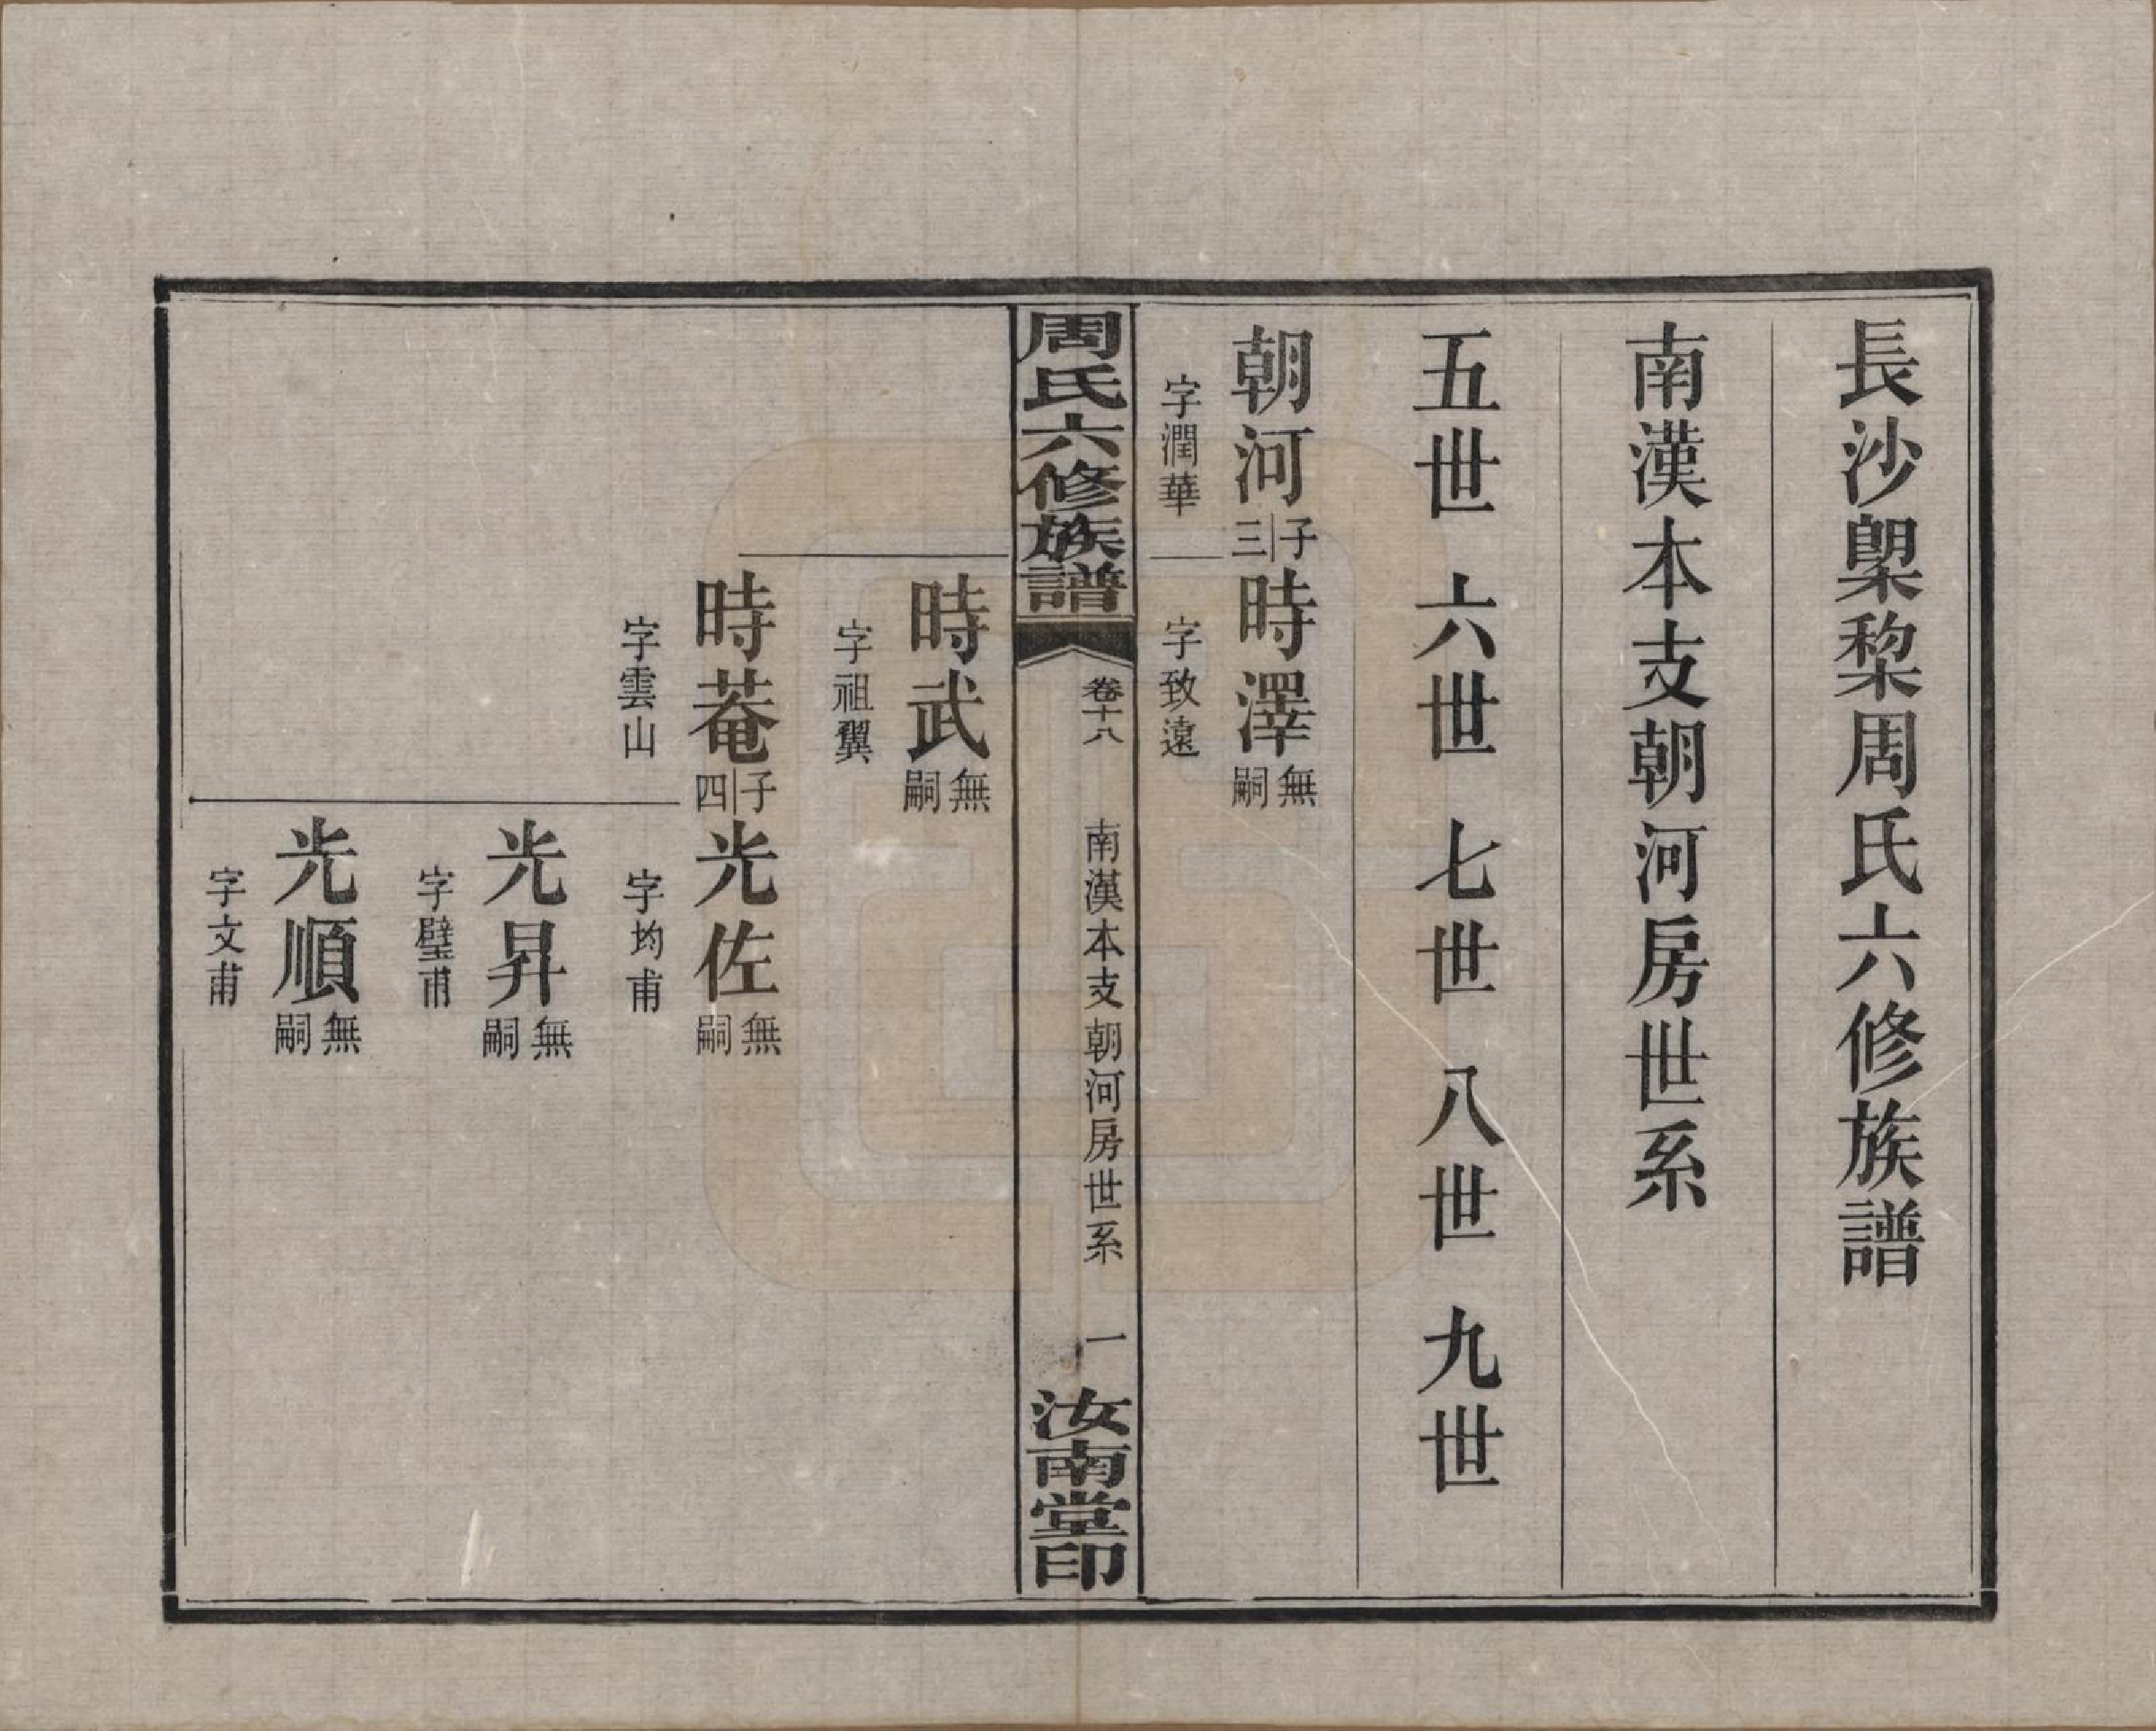 長沙㮚棃周氏六修族譜
南漢本支朝河房世系
五世 六世 七世 八世 九世
朝河 子三 時澤 無嗣
字潤華 字致遠
周氏六修族譜 卷十八 南漢本支朝河房世系 一 汝南堂印
時武 無嗣
字祖翼
時菴 子四 光佐 無嗣
字雲山 字均甫
光昇 無嗣
字璧甫
光順 無嗣
字文甫